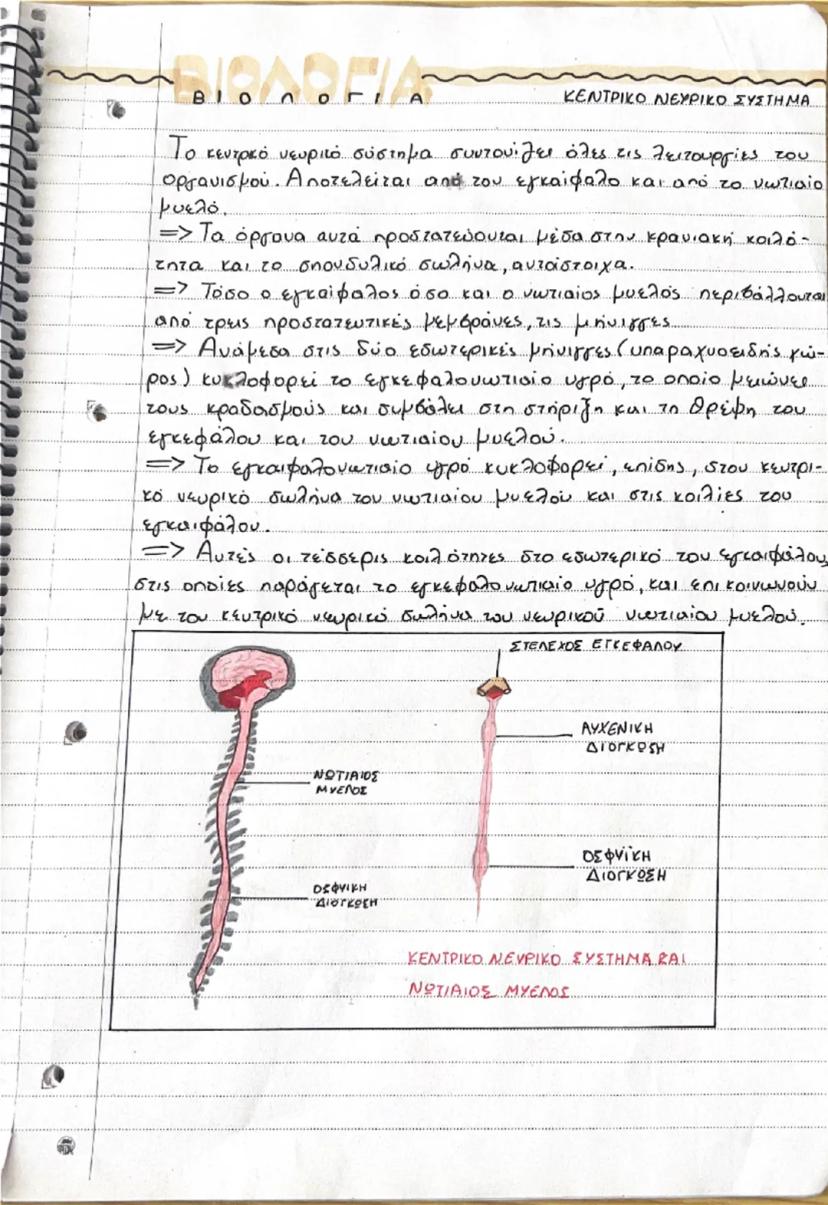 ΒΙΟΛΟΓΙΑ
ΒΙΟΛΟΓΙΑ ΚΕΝΤΡΙΚΟ ΝΕΥΡΙΚΟ ΣΥΣΤΗΜΑ
Το κεντρκό νευρικό σύστημα συντονίζει όλες τις λειτουργίες του
οργανισμού. Αποτελείται από τον εγκαίφαλο και από το νωτιαίο
μυελό.
=> Τα όργανα αυτά προστατεύονται μέσα στην κρανιακή κοιλό-
τητα και το σπονδυλικό σωλήνα, αντίστοιχα.
=> Τόσο ο εγκαίφαλος όσο και ο νωτιαίος μυελός περιβάλλονται
από τρεις προστατευτικές μεμβράνες, τις μήνιγγες
=> Ανάμεσα στις δύο εσωτερικές μήνιγγες (υπαραχνοειδής χώ-
ρος) κυκλοφορεί το εγκεφαλονωτιαίο υγρό, το οποίο μειώνει
τους κραδασμούς και συμβάλει στη στήριξη και τη θρέψη του
εγκεφάλου και του νωτιαίου μυελού.
=> Το εγκαιφαλονωτιαίο υγρό κυκλοφορεί, επίσης, στον κεντρι-
κό νευρικό σωλήνα του νωτιαίου μυελού και στις κοιλίες του
εγκαιφάλου.
=> Αυτές οι τέσσερις κοιλότητες στο εσωτερικό του εγκαιφάλου,
στις οποίες παράγεται το εγκεφαλονωτιαίο υγρό, και επικοινωνούν
με τον κεντρικό νευρικό σωλήνα του νευρικού νωτιαίου μυελού.
ΣΤΕΛΕΧΟΣ ΕΓΚΕΦΑΛΟΥ
ΑΥΧΕΝΙΚΗ
ΔΙΟΓΚΩΣΗ
ΝΩΤΙΑΙΟΣ
ΜΥΕΛΟΣ
ΟΣΦΥΪΚΗ
ΔΙΟΓΚΩΣΗ
ΟΣΦΥΙΚΗ
ΔΙΟΓΚΩΣΗ
ΚΕΝΤΡΙΚΟ ΝΕΥΡΙΚΟ ΣΥΣΤΗΜΑ ΚΑΙ
ΝΩΤΙΑΙΟΣ ΜΥΕΛΟΣ